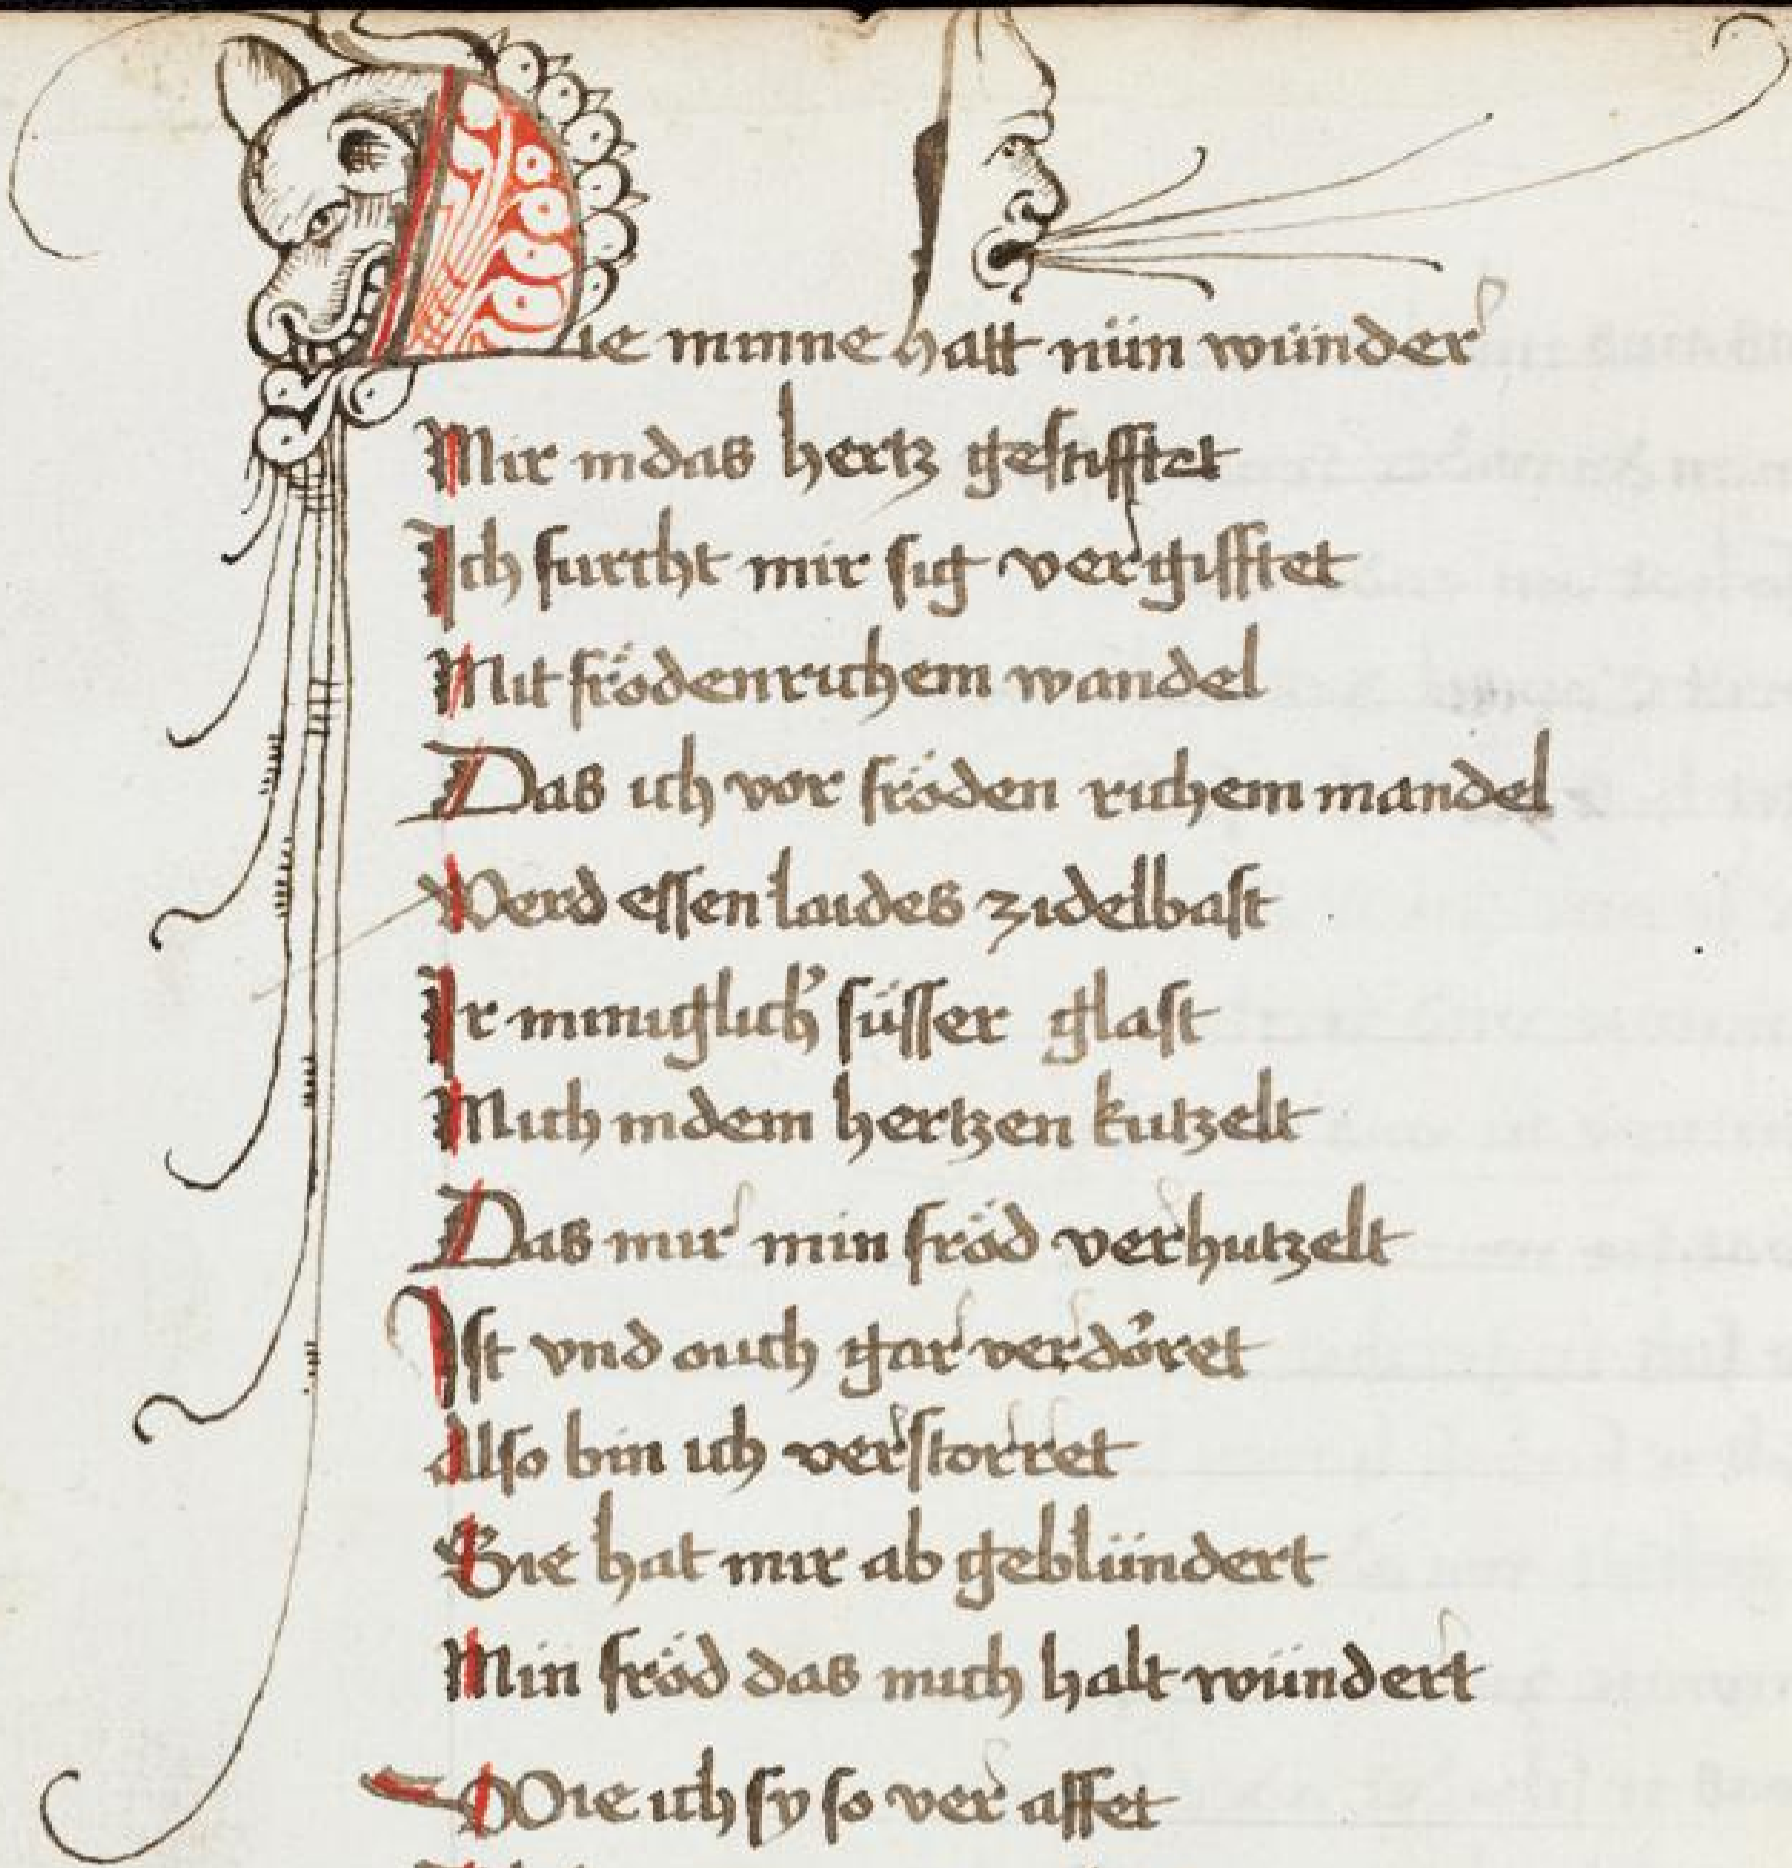 Die minne halt nün wünder
Mir in das hertz gestifftet
Ich furcht mir sig vergifftet
Mit frödenrichem wandel
Das ich vor fröden richem mandel
Werd essen laides zidelbast
Ir minniglich' süsser glast
Mich in dem hertzen kutzelt
Das mir min fröd verhutzelt
Ist vnd ouch gar verdo᷑ret
Also bin ich verstorret
Sie hat mir ab geblündert
Min fröd das mich halt wündert
Wie ich sy so ver affet